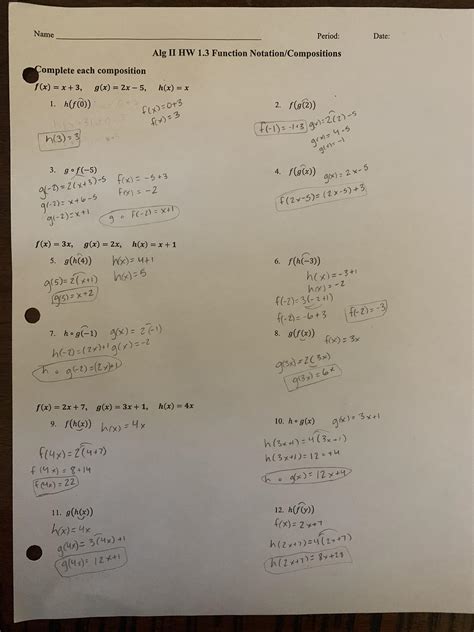 Name
Period:
Date:
Alg II HW 1.3 Function Notation/Compositions
Complete each composition
f(x) = x + 3, g(x) = 2x − 5, h(x) = x
1. h(f(0))
f(x)=0+3
f(x)=3
h(3)=3
2. f(g(2))
g(x)=2(2)-5
g(x)=4-5
g(x)=-1
f(-1)=-1+3
3. g∘f(−5)
f(x)=-5+3
f(x)=-2
g(-2)=2(x+3)-5
g(-2)=x+6-5
g(-2)=x+1
g ∘ f(-2)=x+1
4. f(g(x))
g(x)=2x-5
f(2x-5)=(2x-5)+3
f(x) = 3x, g(x) = 2x, h(x) = x + 1
5. g(h(4))
h(x)=4+1
h(x)=5
g(5)=2(x+1)
g(5)=x+2
6. f(h(−3))
h(x)=-3+1
h(x)=-2
f(-2)=3(-2+1)
f(-2)=-6+3
f(-2)=-3
7. h∘g(−1)
g(x)=2(-1)
g(x)=-2
h(-2)=(2x)+1
h ∘ g(-2)=(2x)+1
8. g(f(x))
f(x)=3x
g(3x)=2(3x)
g(3x)=6x
f(x) = 2x + 7, g(x) = 3x + 1, h(x) = 4x
9. f(h(x))
h(x)=4x
f(4x)=2(4+7)
f(4x)=8+14
f(4x)=22
10. h∘g(x)
g(x)=3x+1
h(3x+1)=4(3x-1)
h(3x+1)=12x+4
h ∘ g(x)=12x+4
11. g(h(x))
h(x)=4x
g(4x)=3(4x)+1
g(4x)=12x+1
12. h(f(y))
f(x)=2x+7
h(2x+7)=4(2x+7)
h(2x+7)=8x+28